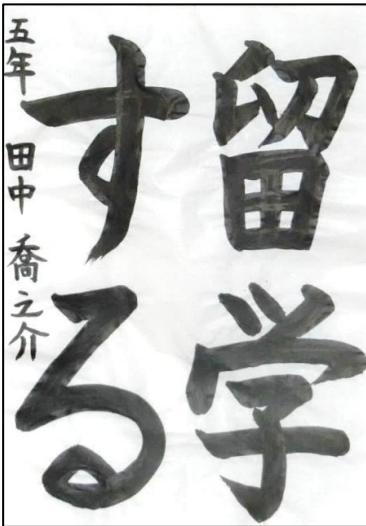 留学
する
五年 田中 喬之介